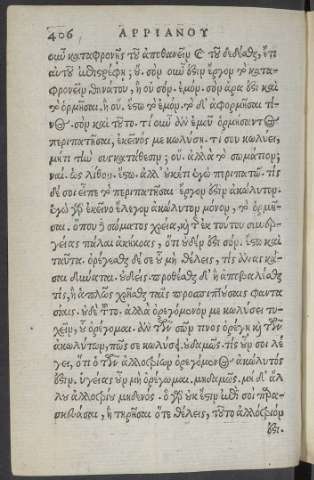 406 ΑΡΡΙΑΝΟΥ
οιοῦ καταφρονῇς τοῦ ἀποθανεῖν καὶ τοῦ δεδέσθαι, ἔτι
αὐτοῦ ἐπιστρέφῃ; οὔ. σὸν οὖν ἐστιν ἔργον τὸ κατα-
φρονεῖν θανάτου, ἢ οὐ σόν. ἐμόν. σὸν ἄρα ἐστὶ καὶ
τὸ ὁρμῆσαι. ἢ οὔ. ἔστω τὸ ἐμόν. τὸ δ' ἀφορμῆσαι τί-
νος. σὸν καὶ τοῦτο. τί οὖν ἂν ἐμοῦ ὁρμήσαντος
περιπατῆσαι, ἐκεῖνός με κωλύσῃ. τί σου κωλύσει,
μήτι τὴν συγκατάθεσιν; οὔ. ἀλλὰ τὸ σωμάτιον;
ναί. ὡς λίθον. ἔστω. ἀλλ' οὐκέτι ἐγὼ περιπατῶ. τίς
δέ σοι εἶπε τὸ περιπατῆσαι ἔργον ἐστὶν ἀκώλυτον.
ἐγὼ γὰρ ἐκεῖνο ἔλεγον ἀκώλυτον μόνον, τὸ ὁρμῆ-
σαι. ὅπου δὲ σώματος χρεία, καὶ τῆς ἐκ τούτου συνερ-
γείας πάλαι ἀκήκοας, ὅτι οὐδέν ἐστι σόν. ἔστω καὶ
ταῦτα. ὀρέγεσθαι δέ σε οὗ μὴ θέλεις, τίς ἀναγκά-
σαι δύναται. οὐδείς. προθέσθαι δ' ἢ ἐπιβαλέσθαι
τίς, ἢ ἁπλῶς χρῆσθαι ταῖς προσπιπτούσαις φαντα
σίαις. οὐδὲ τοῦτο. ἀλλὰ ὀρεγόμενόν με κωλύσει τυ-
χεῖν, οὗ ὀρέγομαι. ἂν τῶν σῶν τινος ὀρέγῃ καὶ τῶν
ἀκωλύτων, πῶς σε κωλύσει; οὐδαμῶς. τίς οὖν σοι λέ
γει, ὅτι ὁ τῶν ἀλλοτρίων ὀρεγόμενος ἀκώλυτός
ἐστιν. ὑγείας οὖν μὴ ὀρέγωμαι. μηδαμῶς. μηδ' ἄλ
λου ἀλλοτρίου μηδενός. ὃ γὰρ οὐκ ἔστιν ἐπὶ σοὶ παρα-
σκευάσαι, ἢ τηρῆσαι ὅτε θέλεις, τοῦτο ἀλλότριον
ἐστι.